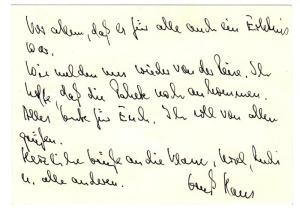 Vor allem, daß es für alle auch ein Erlebnis
war.
Wir melden uns wieder von der Reise. Ich
hoffe daß die Pakete noch ankommen.
Alles Gute für Euch. Ich soll von allen
grüßen.
Herzliche Grüße an die
u. alle anderen.